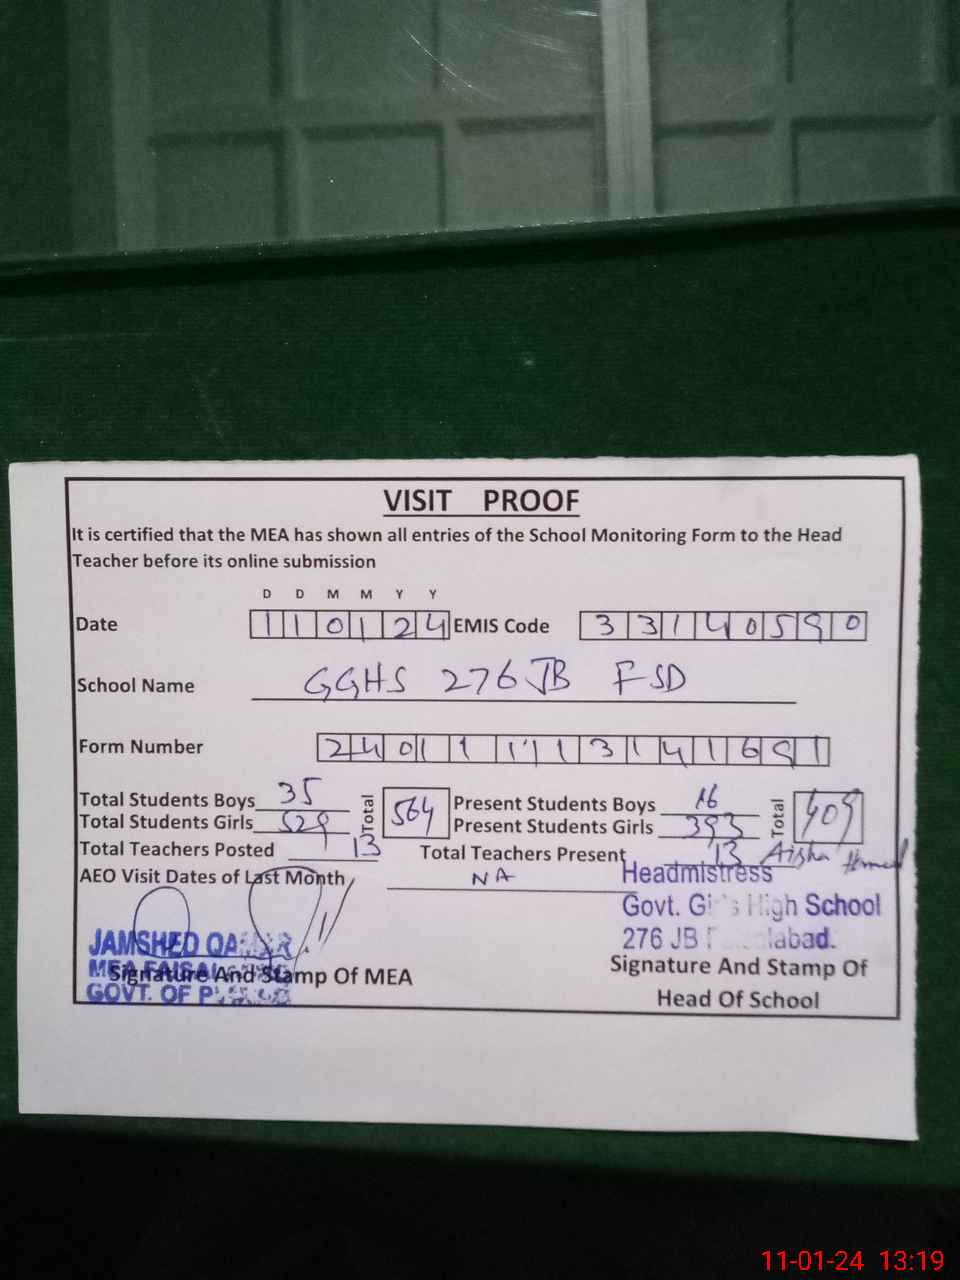 VISIT PROOF
It is certified that the MEA has shown all entries of the School Monitoring Form to the Head
Teacher before its online submission
D D M M Y Y
Date 1 1 0 1 2 4 EMIS Code 3 3 1 4 0 5 9 0
School Name GGHS 276 JB FSD
Form Number 2 4 0 1 1 1 1 1 3 1 4 1 6 9 1
Total Students Boys 35 Total 564 Present Students Boys 16 Total 409
Total Students Girls 529 Present Students Girls 393
Total Teachers Posted 13 Total Teachers Present 13 Aisha
AEO Visit Dates of Last Month NA Headmistress
Govt. Girls High School
JAMSHED 276 JB
MEA Signature And Stamp Of MEA Signature And Stamp Of
GOVT. OF Head Of School
11-01-24 13:19